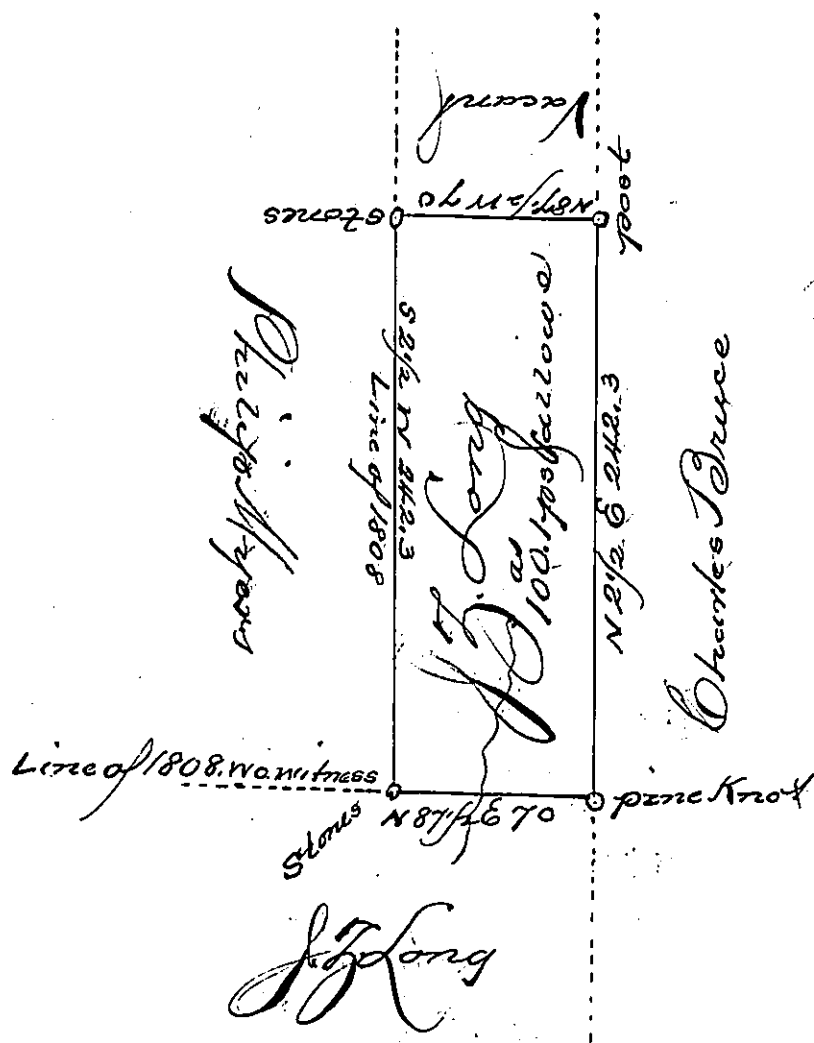 Vacant
Stones
N 87½ W 70
post
Philip Myers
S 2½ W 242.3
Line of 1808
J. Z. Long
as
100.1 ps & allowe
N 2½ E 242.3
Charles Bryce
Line of 1808. no witness
Stones
N 87½ E 70
pine Knot
J. Z. Long